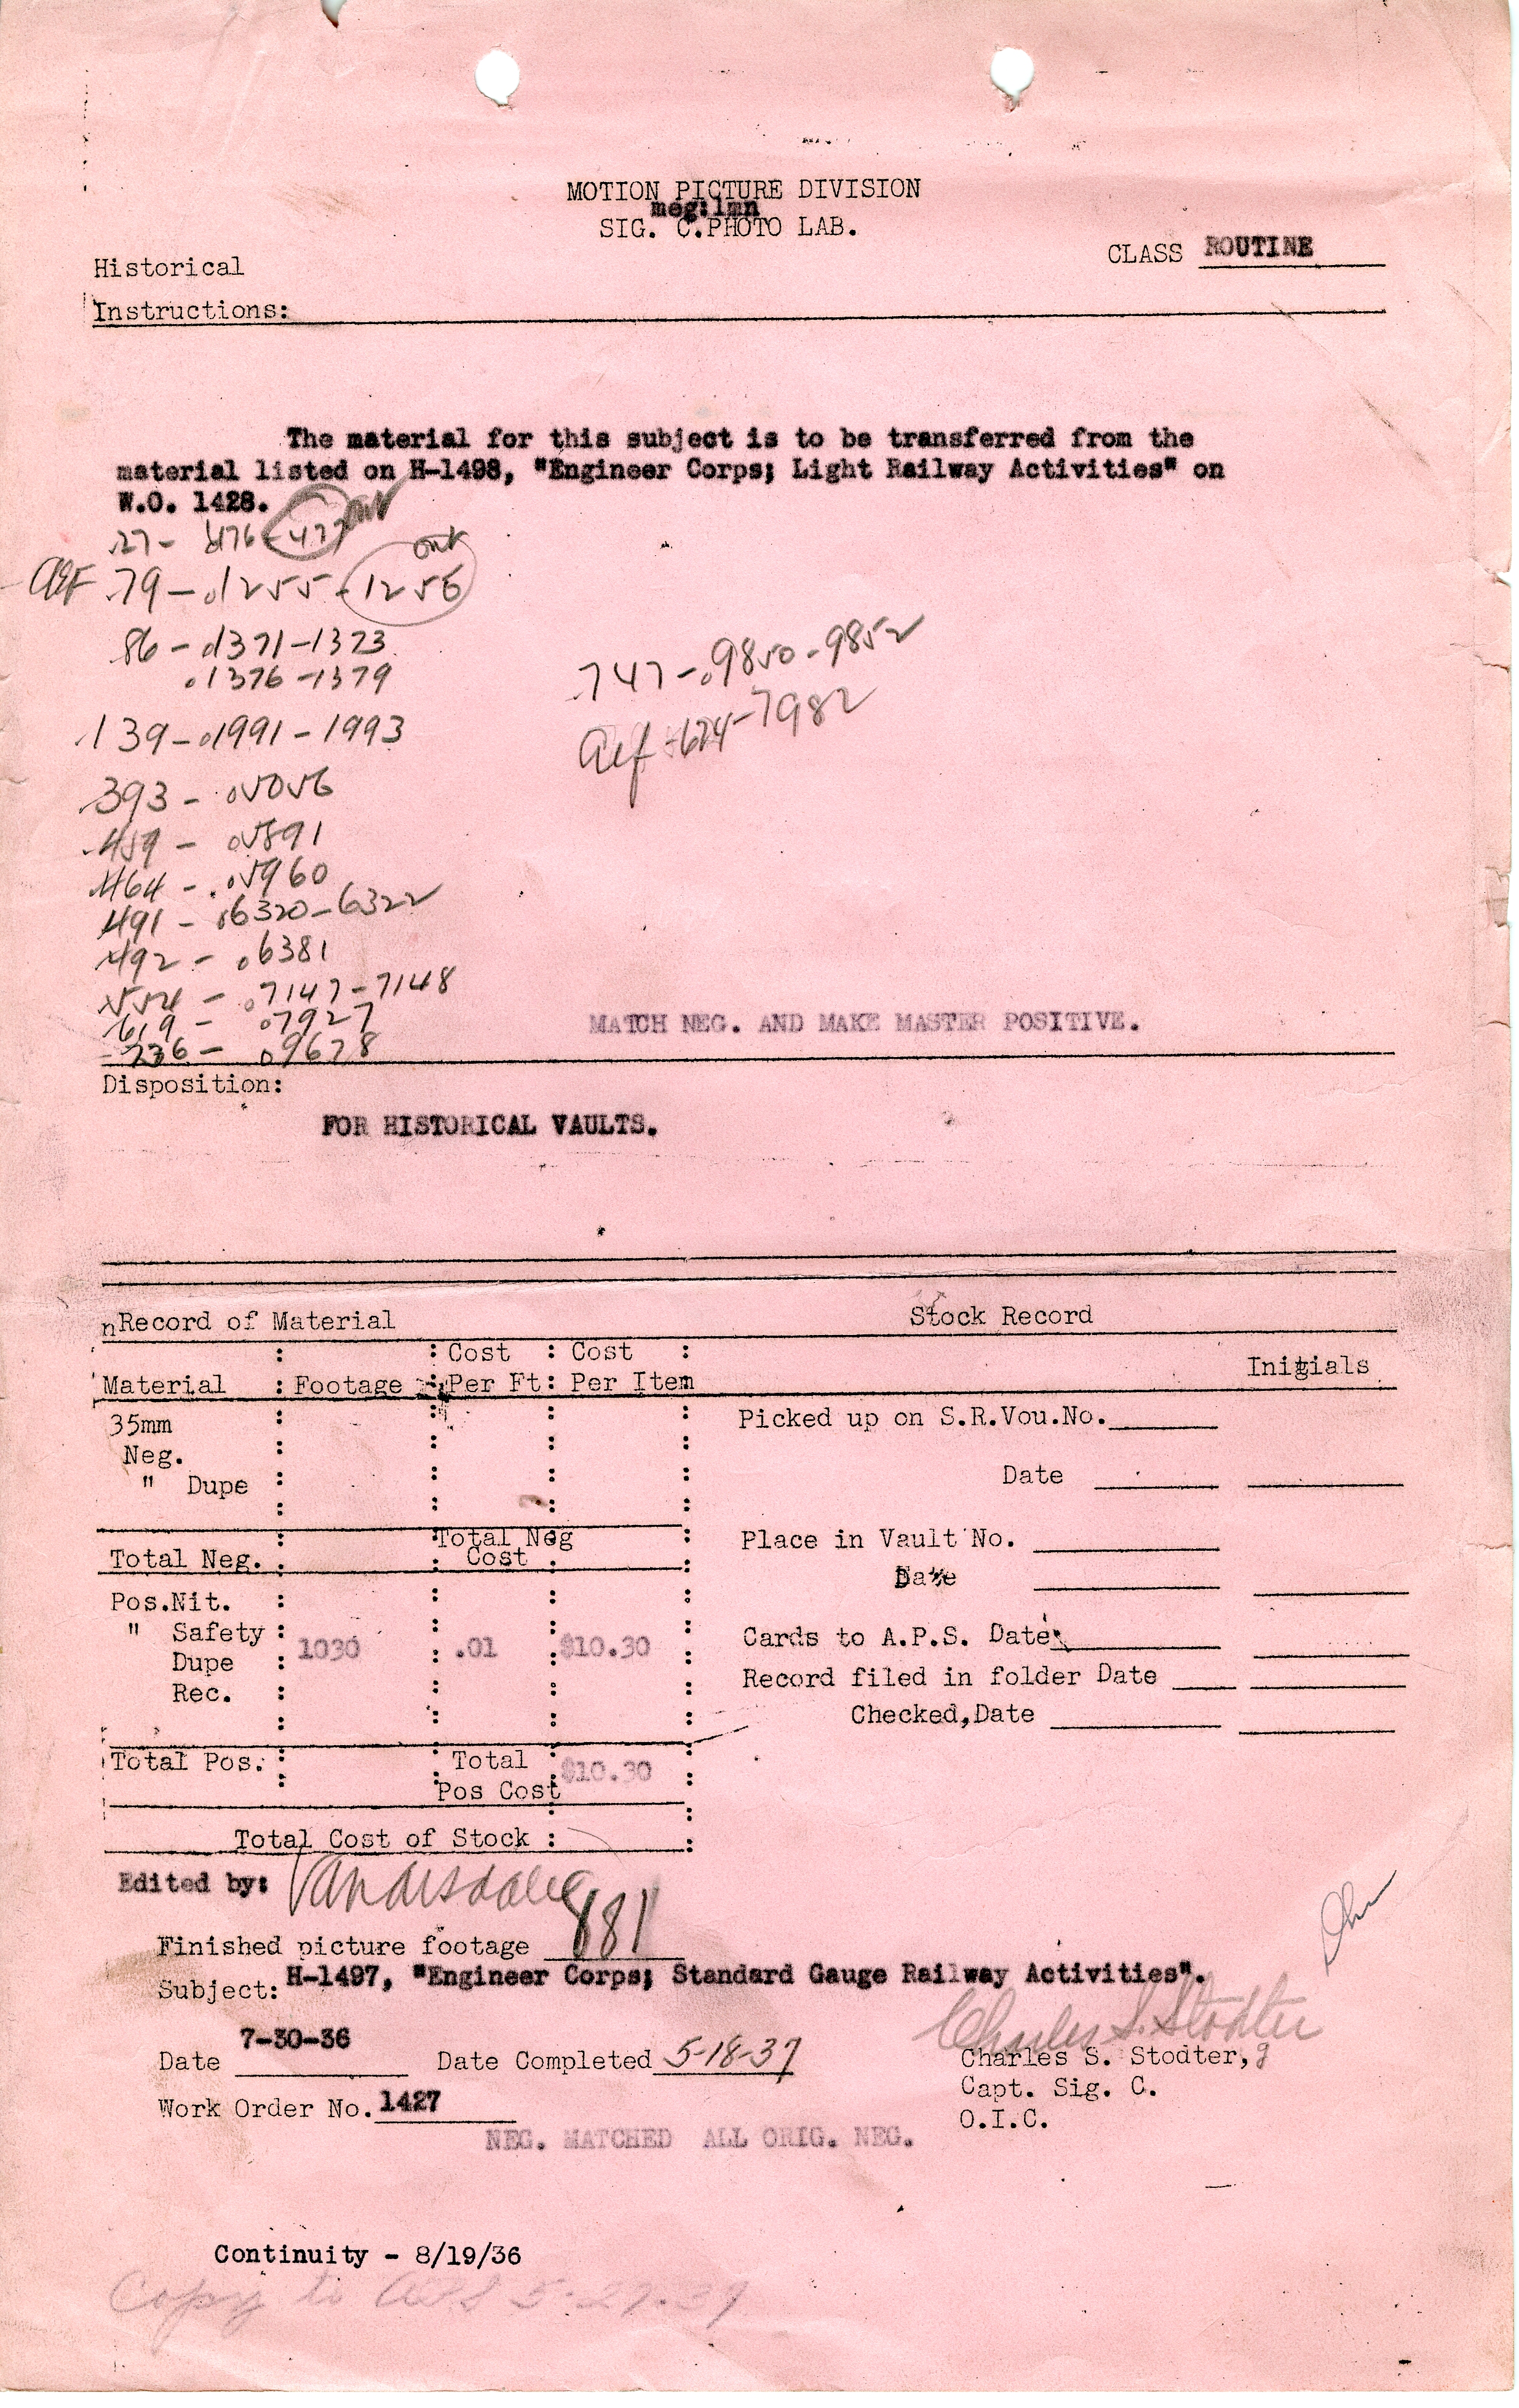 MOTION PICTURE DIVISION
meg:lmn
SIG. C.PHOTO LAB.
CLASS ROUTINE
Historical
Instructions:
The material for this subject is to be transferred from the
material listed on H-1498, "Engineer Corps; Light Railway Activities" on
W.O. 1428.
27- 476-477 out
out
AEF 79-1255-1256
86-1371-1373
.1376-1379
139-1991-1993
747-9850-9852
Aef-624-7982
393-5056
459-5891
464-5960
491-6320-6322
492-6381
554-7147-7148
619-7927
MATCH NEG. AND MAKE MASTER POSITIVE.
736-9678
Disposition:
FOR HISTORICAL VAULTS.
nRecord of Material
Stock Record
Material : Footage : Cost Per Ft: Cost Per Item :
Initials
35mm
Neg.
" Dupe
Picked up on S.R.Vou.No.
Date
Total Neg. Total Neg Cost
Place in Vault No.
Date
Pos.Nit.
" Safety 1030 .01 $10.30
Dupe
Rec.
Cards to A.P.S. Date
Record filed in folder Date
Checked,Date
Total Pos. Total Pos Cost $10.30
Total Cost of Stock :
Edited by: Vanarsdale
Finished picture footage 881
Subject: H-1497, "Engineer Corps; Standard Gauge Railway Activities".
Charles S. Stodter
Date 7-30-36 Date Completed 5-18-37
Charles S. Stodter,
Capt. Sig. C.
O.I.C.
Work Order No. 1427
NEG. MATCHED ALL ORIG. NEG.
Continuity - 8/19/36
Copy to APS 5-27-37